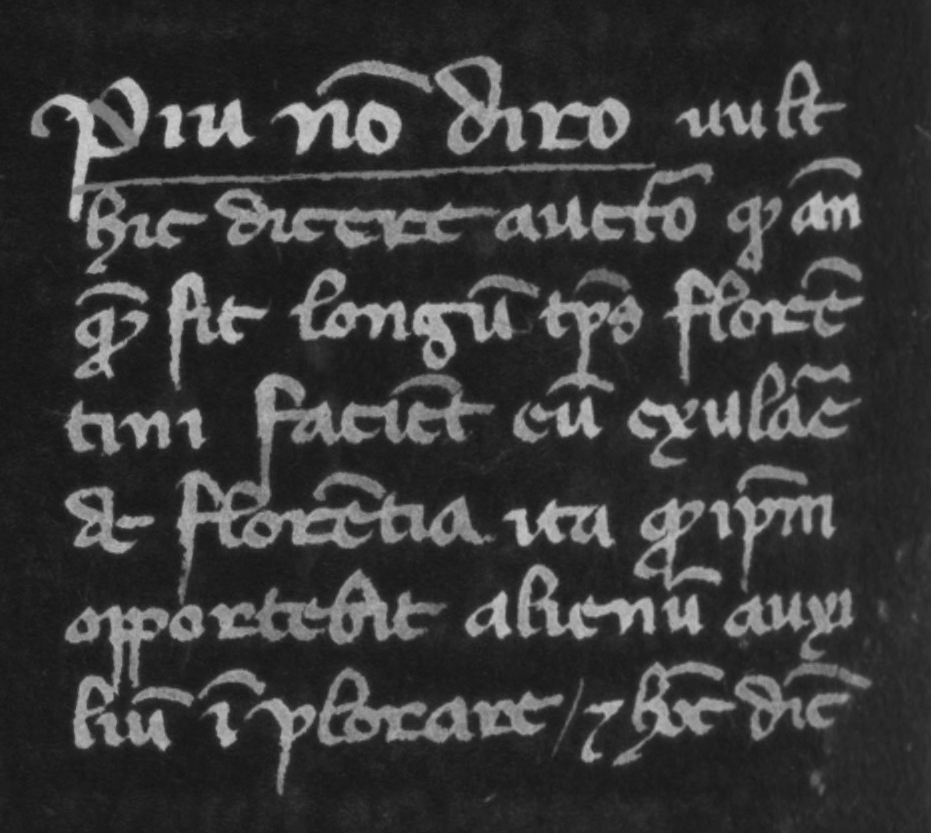 Piu nō diro uult
hic dicere auctō qͥ an̄
qͣ̄ sit longū tp̄s florē
tini faciēt eū exulāē
de florētia ita qͥ ip̄m
opportebit alienū auxi
liū ī plorare / ⁊ hoc̄ dic̄